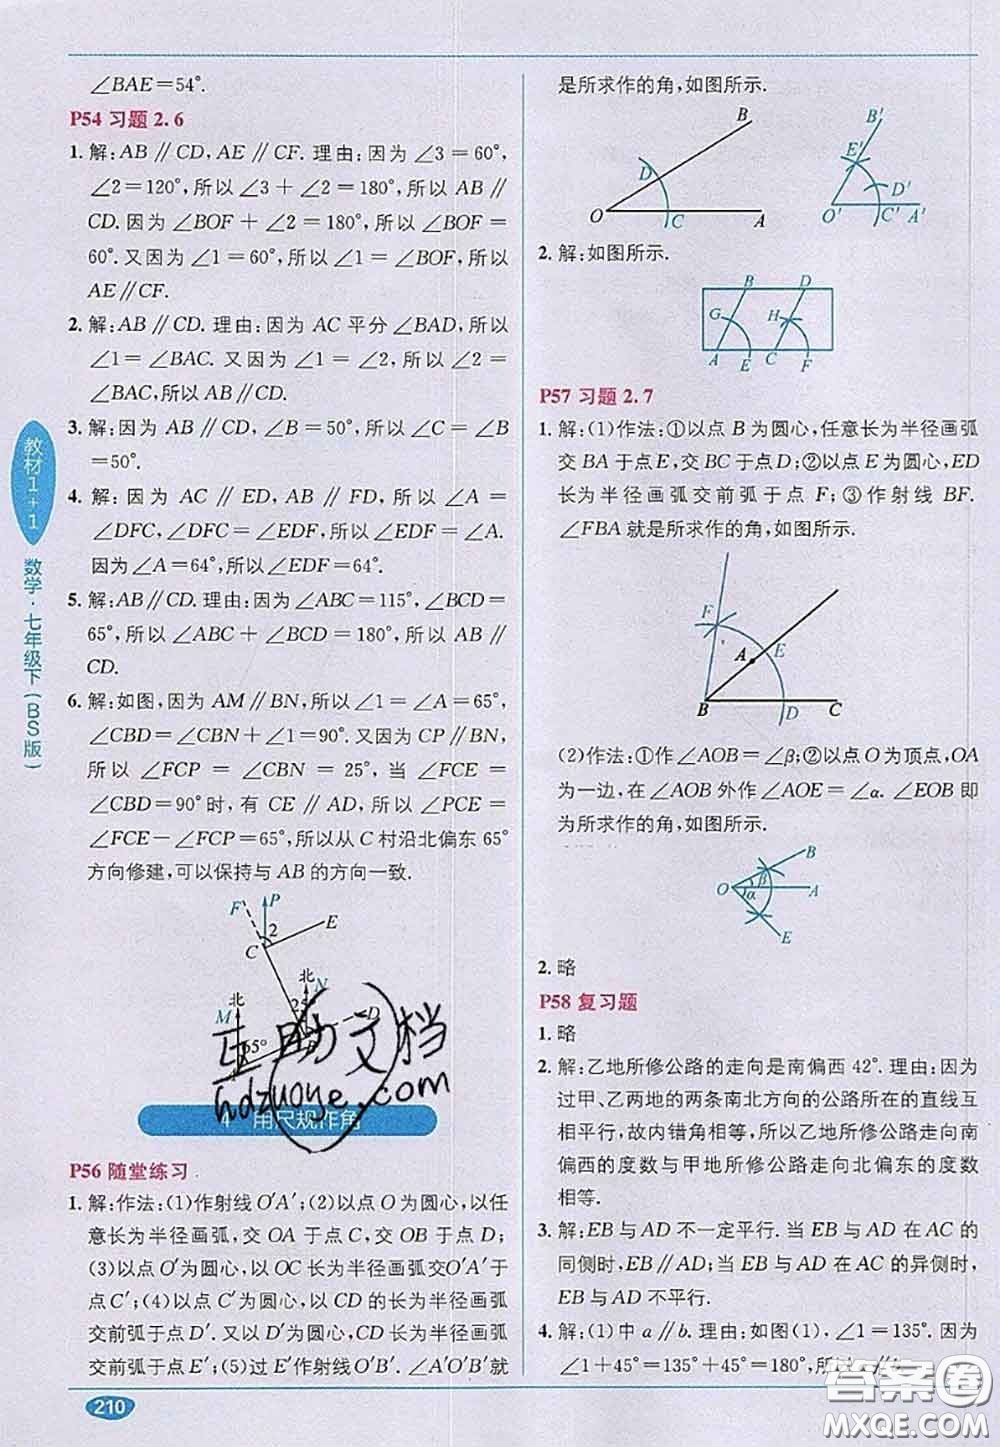 ∠BAE=54°.
P54 习题 2.6
1. 解:AB∥CD,AE∥CF. 理由:因为∠3=60°,
∠2=120°,所以∠3+∠2=180°,所以 AB∥
CD. 因为∠BOF+∠2=180°,所以∠BOF=
60°. 又因为∠1=60°,所以∠1=∠BOF,所以
AE∥CF.
2. 解:AB∥CD. 理由:因为 AC 平分∠BAD,所以
∠1=∠BAC. 又因为∠1=∠2,所以∠2=
∠BAC,所以 AB∥CD.
3. 解:因为 AB∥CD,∠B=50°,所以∠C=∠B
=50°.
4. 解:因为 AC∥ED,AB∥FD,所以∠A=
∠DFC,∠DFC=∠EDF,所以∠EDF=∠A.
因为∠A=64°,所以∠EDF=64°.
5. 解:AB∥CD. 理由:因为∠ABC=115°,∠BCD=
65°,所以∠ABC+∠BCD=180°,所以 AB∥
CD.
6. 解:如图,因为 AM∥BN,所以∠1=∠A=65°,
∠CBD=∠CBN+∠1=90°. 又因为 CP∥BN,
所以∠FCP=∠CBN=25°,当∠FCE=
∠CBD=90°时,有 CE∥AD,所以∠PCE=
∠FCE-∠FCP=65°,所以从 C 村沿北偏东 65°
方向修建,可以保持与 AB 的方向一致.
F
P
E
2
C
北
N
北
M
25°
D
65°
互助文档
hdzuoye.com
4 用尺规作角
P56 随堂练习
1. 解:作法:(1)作射线 O′A′;(2)以点 O 为圆心,以任
意长为半径画弧,交 OA 于点 C,交 OB 于点 D;
(3)以点 O′为圆心,以 OC 长为半径画弧交 O′A′于
点 C′;(4)以点 C′为圆心,以 CD 的长为半径画弧
交前弧于点 D′. 又以 D′为圆心,CD 长为半径画弧
交前弧于点 E′;(5)过 E′作射线 O′B′. ∠A′O′B′就
是所求作的角,如图所示.
B
D
O
C
A
B′
E′
D′
O′
C′
A′
2. 解:如图所示.
B
D
G
H
A
E
C
F
P57 习题 2.7
1. 解:(1)作法:①以点 B 为圆心,任意长为半径画弧
交 BA 于点 E,交 BC 于点 D;②以点 E 为圆心,ED
长为半径画弧交前弧于点 F;③作射线 BF.
∠FBA 就是所求作的角,如图所示.
F
A
E
B
D
C
(2)作法:①作∠AOB=∠β;②以点 O 为顶点,OA
为一边,在∠AOB 外作∠AOE=∠α. ∠EOB 即
为所求作的角,如图所示.
B
β
O
α
A
E
2. 略
P58 复习题
1. 略
2. 解:乙地所修公路的走向是南偏西 42°. 理由:因为
过甲、乙两地的两条南北方向的公路所在的直线互
相平行,故内错角相等,所以乙地所修公路走向南
偏西的度数与甲地所修公路走向北偏东的度数
相等.
3. 解:EB 与 AD 不一定平行. 当 EB 与 AD 在 AC 的
同侧时,EB∥AD;当 EB 与 AD 在 AC 的异侧时,
EB 与 AD 不平行.
4. 解:(1)中 a∥b. 理由:如图(1),∠1=135°. 因为
∠1+45°=135°+45°=180°,所以
教材1+1 数学·七年级下(BS版)
210
答案圈
MXQE.COM